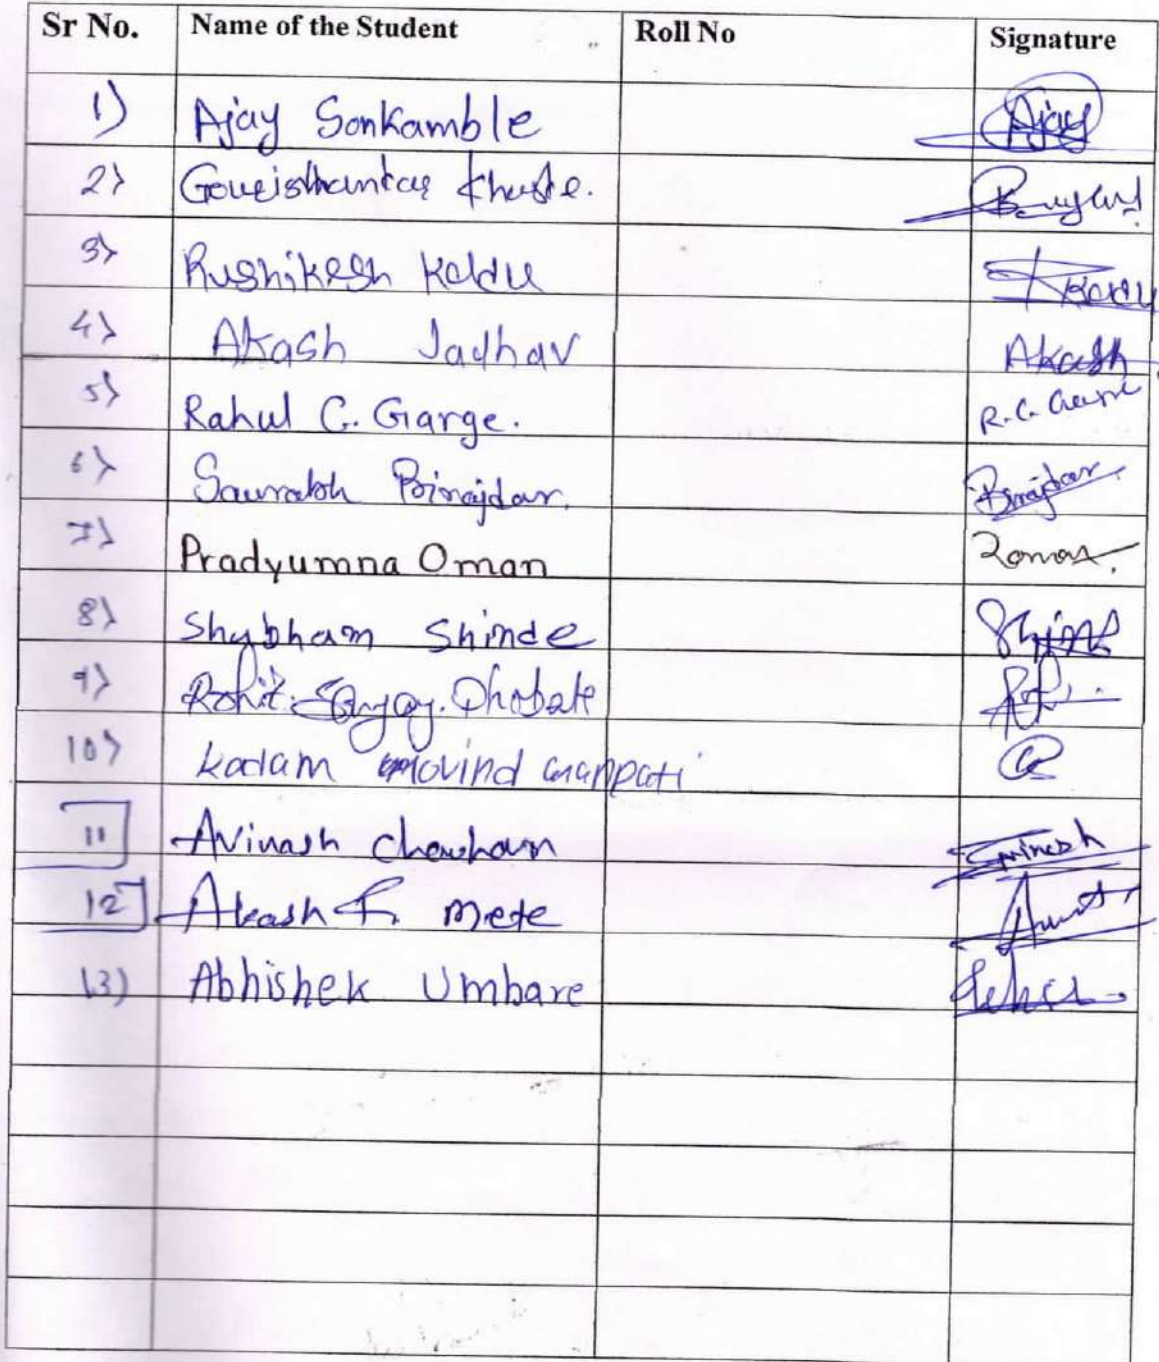 Sr No. Name of the Student Roll No Signature
1) Ajay Sonkamble Ajay
2)
3) Rushikesh Kadu Kadu
4) Akash Jadhav Akash
5) Rahul C. Garge. R.C. Garge
6) Saurabh Birajdar. Birajdar.
7) Pradyumna Oman
8) Shubham Shinde Shinde
9) Rohit. Sanjay. Dhobale
10) Kadam Govind Ganpati
11 Avinash Chavhan Avinash
12 Akash mete
13) Abhishek Umbare